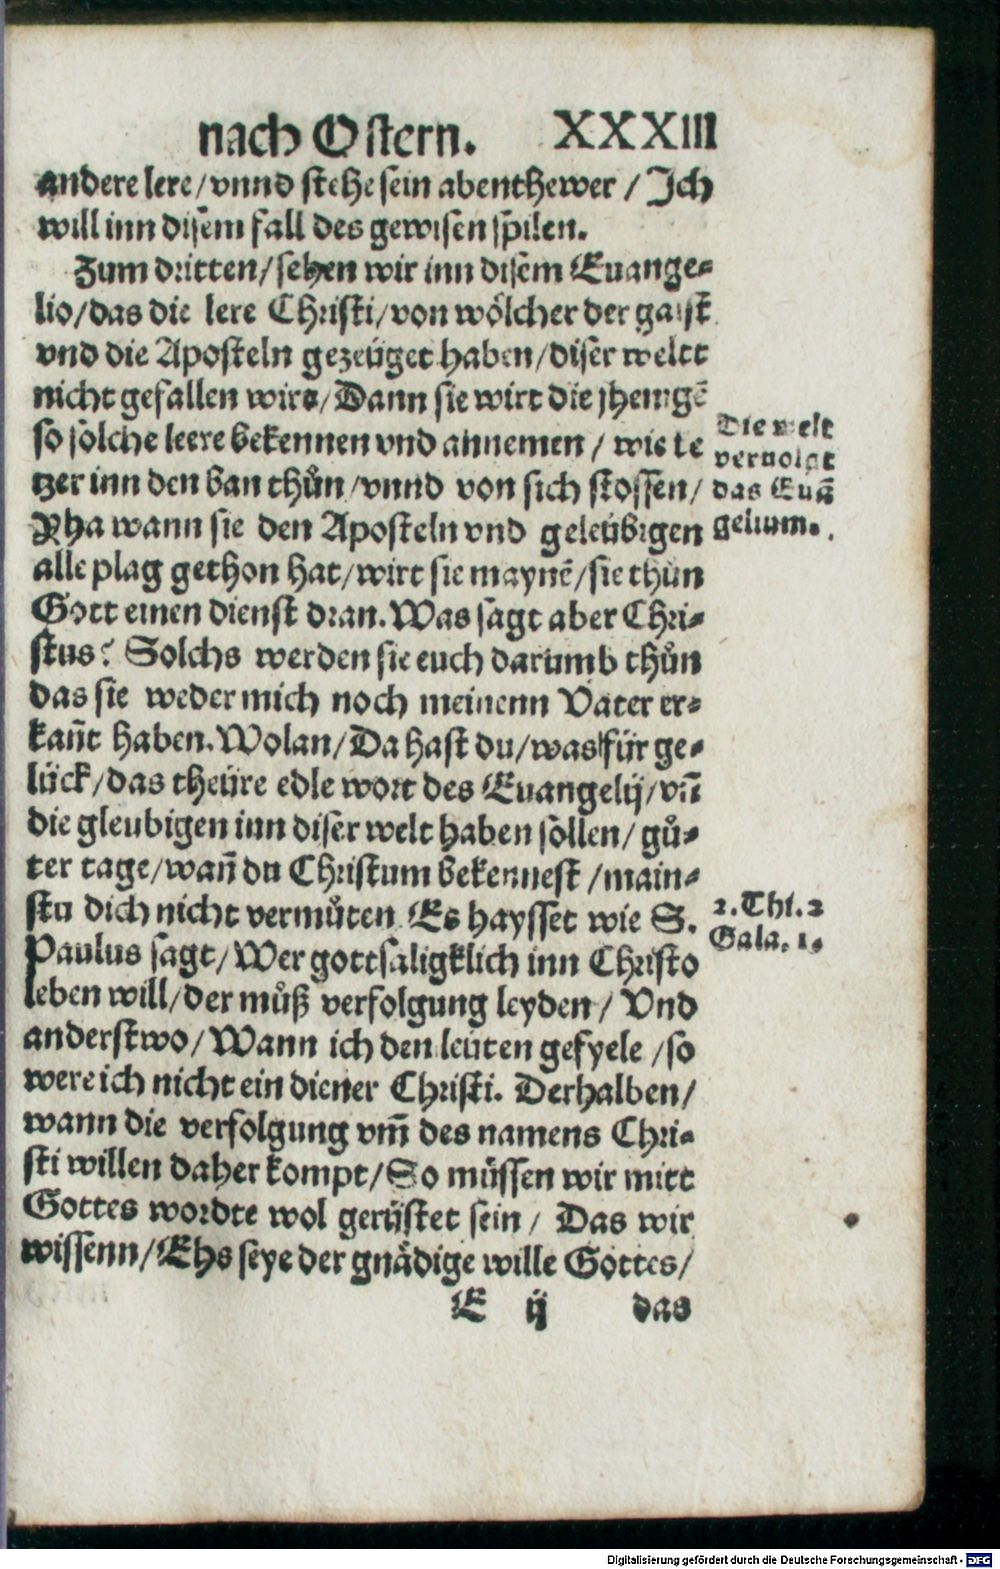 nach Ostern. XXXIII
andere lere/vnnd stehe sein abenthewer / Jch
will inn disem fall des gewisen spilen.
Zum dritten/sehen wir inn disem Euange-
lio/das die lere Christi/von wölcher der gaist
vnd die Aposteln gezeüget haben/diser weltt
nicht gefallen wirt/Dann sie wirt die jhenigẽ
so solche leere bekennen vnd annemen / wie ke
tzer inn den ban thůn/vnnd von sich stossen/
Yha wann sie den Aposteln vnd geleübigen
alle plag gethon hat/wirt sie maynẽ/sie thůn
Gott einen dienst dran. Was sagt aber Chri-
stus? Solchs werden sie euch darumb thůn
das sie weder mich noch meinenn Vater er-
kañt haben. Wolan/Da hast du/was für ge-
lück/das theüre edle wort des Euangelij/vñ
die gleubigen inn diser welt haben sollen/gů-
ter tage/wañ du Christum bekennest/main-
stu dich nicht vermůten Es haysset wie S.
Paulus sagt/Wer gottsäligklich inn Christo
leben will/der můß verfolgung leyden/ Vnd
anderstwo/Wann ich den leüten gefyele /so
were ich nicht ein diener Christi. Derhalben/
wann die verfolgung vm̃ des namens Chri-
sti willen daher kompt/So müssen wir mitt
Gottes wordte wol gerüstet sein/ Das wir
wissenn/Ehs seye der gnädige wille Gottes/
E ij das
Die welt
veruolgt
das Euã
gelium.
2. Thi. 2
Gala. 1.
Digitalisierung gefördert durch die Deutsche Forschungsgemeinschaft - DFG